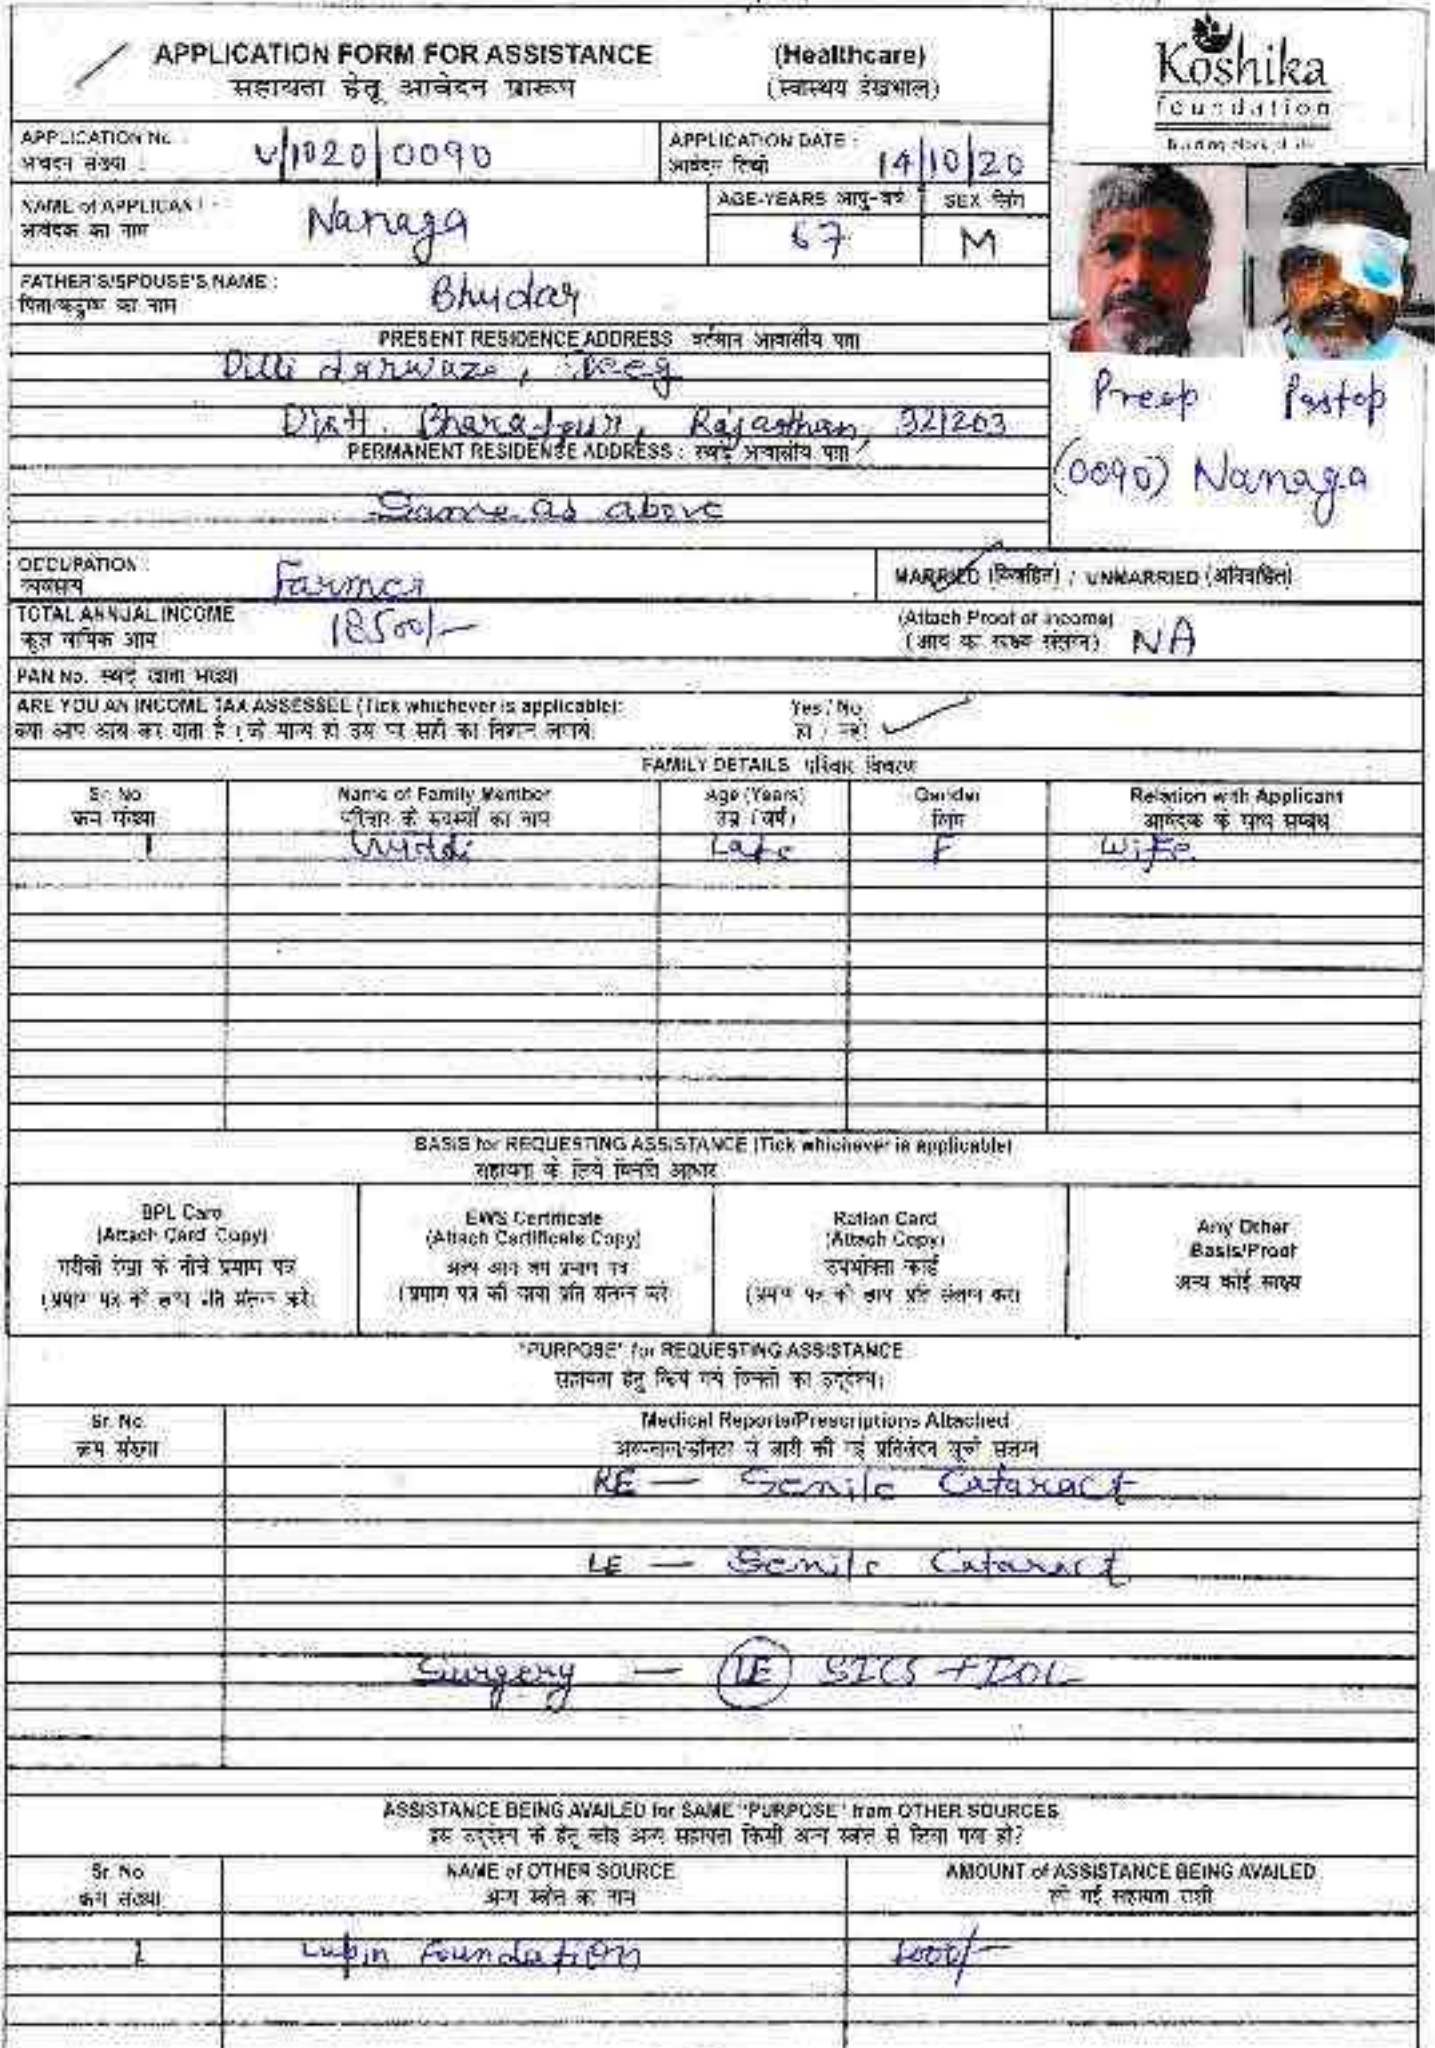 APPLICATION FORM FOR ASSISTANCE (Healthcare)
सहायता हेतू आवेदन प्रारूप (स्वास्थय देखभाल)
Koshika
foundation
APPLICATION No. :
आवेदन संख्या :
V/1020/0090
APPLICATION DATE :
आवेदन तिथी
14/10/20
NAME of APPLICANT :
आवेदक का नाम
Nanaga
AGE-YEARS आयु-वर्ष
67
SEX लिंग
M
FATHER'S/SPOUSE'S NAME :
पिता/कटुम्ब का नाम
Bhudar
PRESENT RESIDENCE ADDRESS वर्तमान आवासीय पता
Dilli darwaza, Deeg
Distt. Bharatpur, Rajasthan, 321203
PERMANENT RESIDENSE ADDRESS : स्थाई आवासीय पता
Same as above
Preop Postop
(0090) Nanaga
OCCUPATION :
व्यवसाय
Farmer
MARRIED (विवाहित) / UNMARRIED (अविवाहित)
TOTAL ANNUAL INCOME
कुल वार्षिक आय
18500/-
(Attach Proof of Income)
(आय का साक्ष्य संलग्न)
NA
PAN No. स्थाई खाता संख्या
ARE YOU AN INCOME TAX ASSESSEE (Tick whichever is applicable):
क्या आप आय कर दाता है (जो मान्य हो उस पर सही का निशान लगाये)
Yes / No
हां / नहीं
FAMILY DETAILS परिवार विवरण
Sr. No Name of Family Member Age (Years) Gender Relation with Applicant
क्रम संख्या परिवार के सदस्यों का नाम उम्र (वर्ष) लिंग आवेदक के साथ सम्बंध
1 Late F Wife
BASIS for REQUESTING ASSISTANCE (Tick whichever is applicable)
सहायता के लिये विनति आधार
BPL Card
(Attach Card Copy)
गरीबी रेखा के नीचे प्रमाण पत्र
(प्रमाण पत्र की छाया प्रति संलग्न करे)
EWS Certificate
(Attach Certificate Copy)
अल्प आय वर्ग प्रमाण पत्र
(प्रमाण पत्र की छाया प्रति संलग्न करे)
Ration Card
(Attach Copy)
उपभोक्ता कार्ड
(प्रमाण पत्र की छाया प्रति संलग्न करे)
Any Other
Basis/Proof
अन्य कोई साक्ष्य
"PURPOSE" for REQUESTING ASSISTANCE
सहायता हेतु किये गये विनती का उद्देश्य।
Sr. No. Medical Reports/Prescriptions Attached
क्रम संख्या अस्पताल/डॉक्टर से जारी की गई प्रतिवेदन सूची संलग्न
RE — Senile Cataract
LE — Senile Cataract
Surgery — LE SICS + IOL
ASSISTANCE BEING AVAILED for SAME "PURPOSE" from OTHER SOURCES
इस उद्देश्य के हेतु कोई अन्य सहायता किसी अन्य स्त्रोत से लिया गया हो?
Sr. No NAME of OTHER SOURCE AMOUNT of ASSISTANCE BEING AVAILED
क्रम संख्या अन्य स्त्रोत का नाम ली गई सहायता राशी
1 Lupin Foundation 1000/-